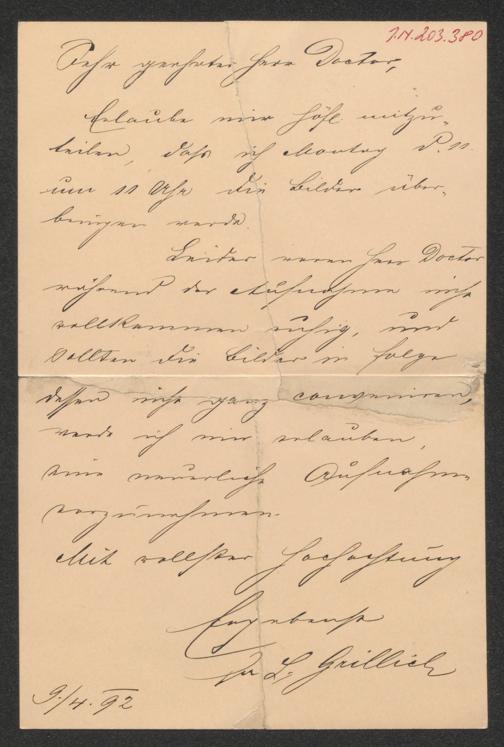 J.N. 203.380
Sehr geehrter Herr Doctor,
Erlaube mir höfl. mitzu-
teilen, dass ich Montag d. 11.
um 11 Uhr die Bilder über-
bringen werde.
Leider waren Herr Doctor
während der Aufnahme nicht
vollkommen ruhig, und
sollten die Bilder in folge
dessen nicht ganz conveniren,
werde ich mir erlauben,
eine neuerliche Aufnahme
vorzunehmen.
Mit vollster Hochachtung
Ergebenst
L. Grillich
9./4. 92